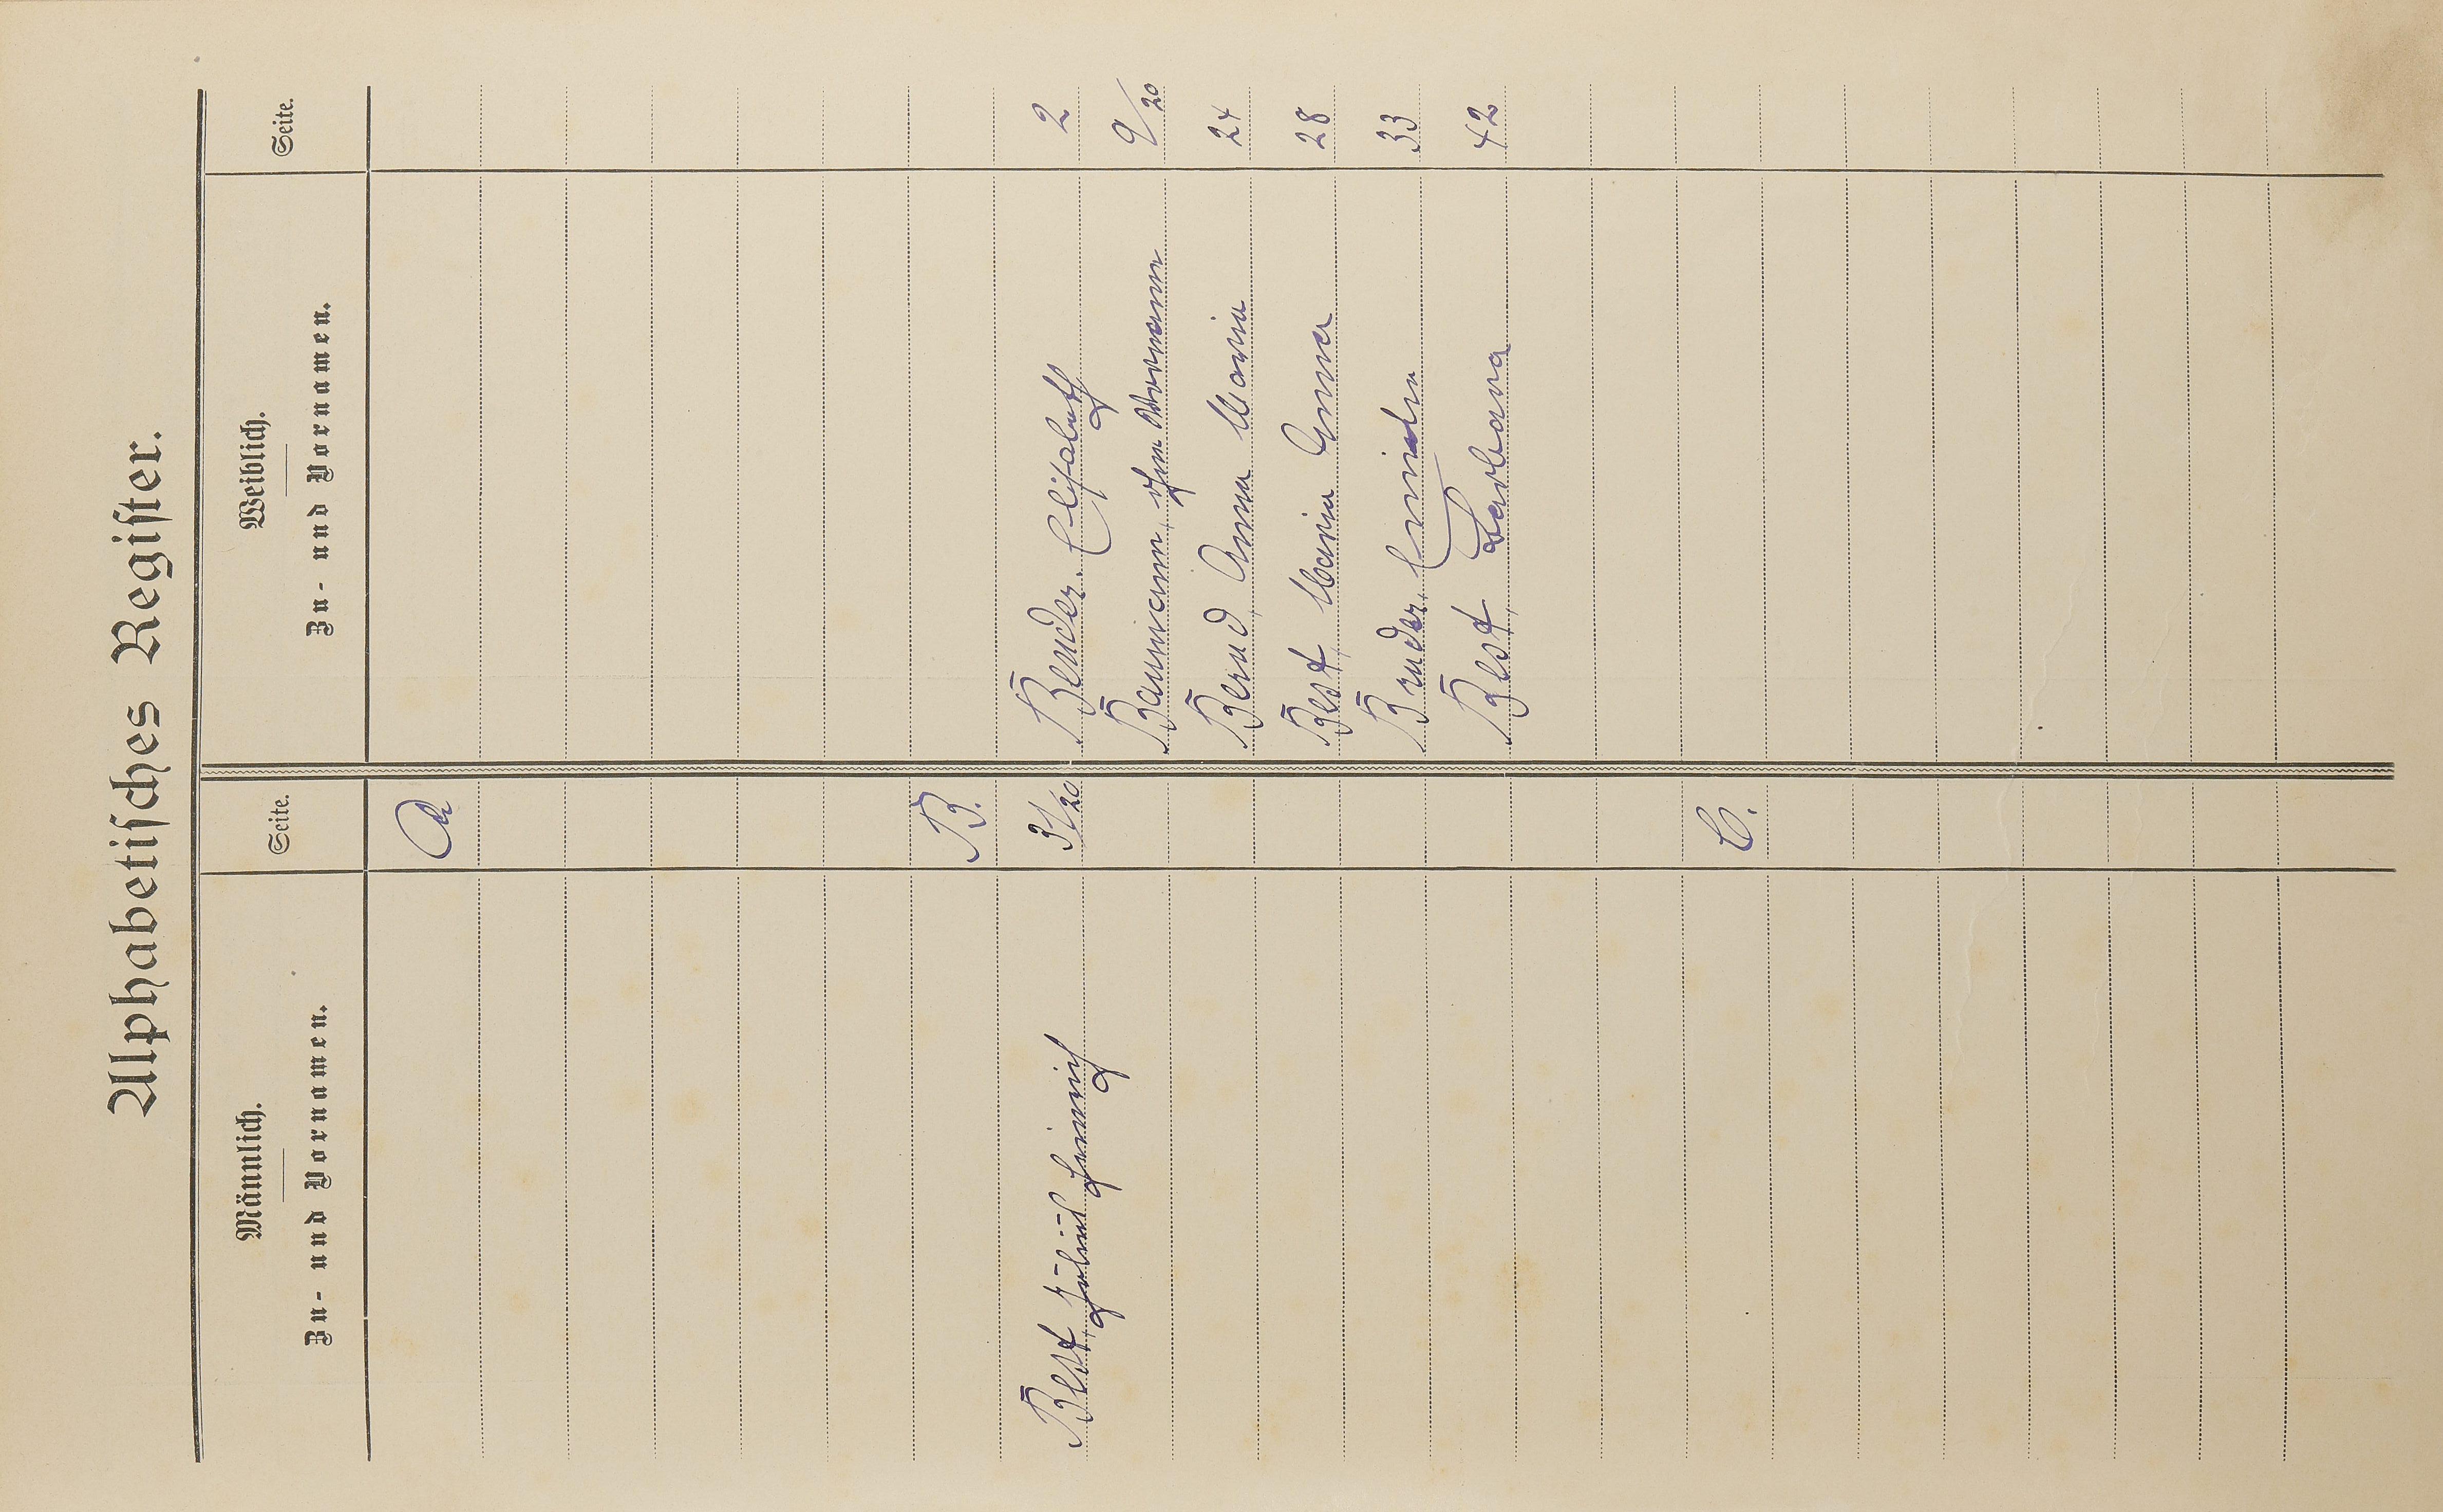 Alphabetisches Register.
Männlich.
Zu- und Vornamen.
Seite.
Weiblich.
Zu- und Vornamen.
Seite.
A
B.
Best, Julius Heinrich 31/20
Bender, Elisabeth 2
Baumann, 9/20
Bernd, Anna Maria 24
Best, Maria Emma 28
Bruder, 33
Best, Barbara 42
C.